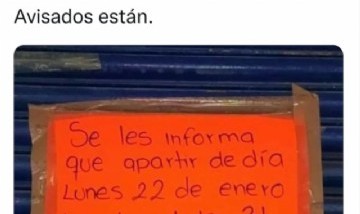 Avisados están.
Se les informa
que apartir de día
Lunes 22 de enero